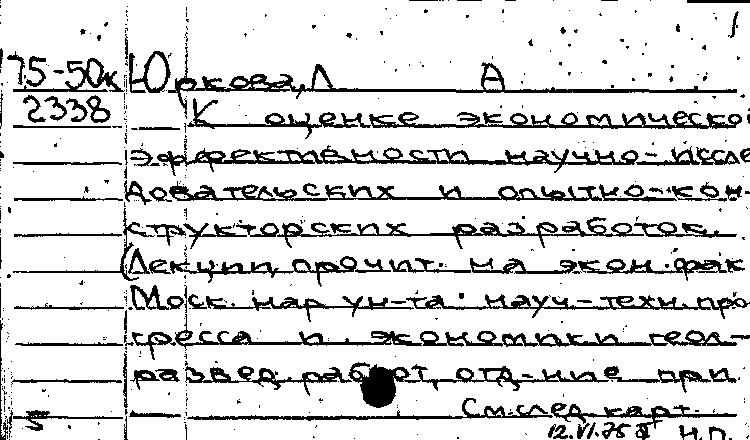 1
75-50к Юркова, Л А
2338 К оценке экономической
эффективности научно-иссле
довательских и опытно-кон
структорских разработок.
(Лекции, прочит. на экон. фак
Моск. нар ун-та. науч.-техн. про
гресса и экономики геол-
развед. работ, отд-ние при
См.след карт.
5 12.VI.75 Н.П.